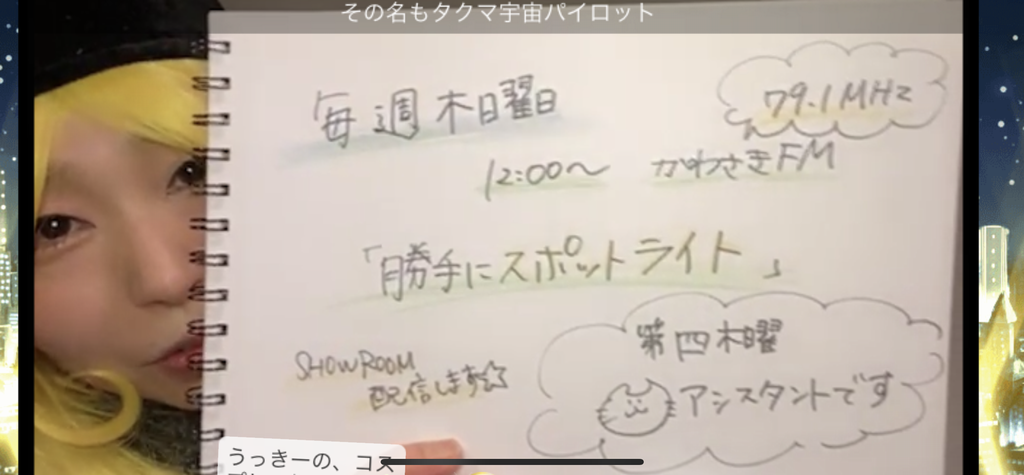 その名もタクマ宇宙パイロット
「毎週木曜日
79.1MHz
12:00〜 かわさきFM
「勝手にスポットライト」
SHOWROOM
配信します☆
第四木曜
アシスタントです
うっきーの、コス